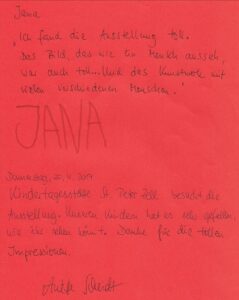 Jana
"Ich fand die Ausstellung toll.
Das Bild, das wie ein Mensch aussah,
war auch toll... Und das Kunstwerk mit
vielen verschiedenen Menschen."
JANA
Donnerstag,
Kindertagesstätte St. Peter besucht die
Ausstellung. Unseren Kindern hat es sehr gefallen,
wie sie sehen könnt. Danke für die tollen
Impressionen.